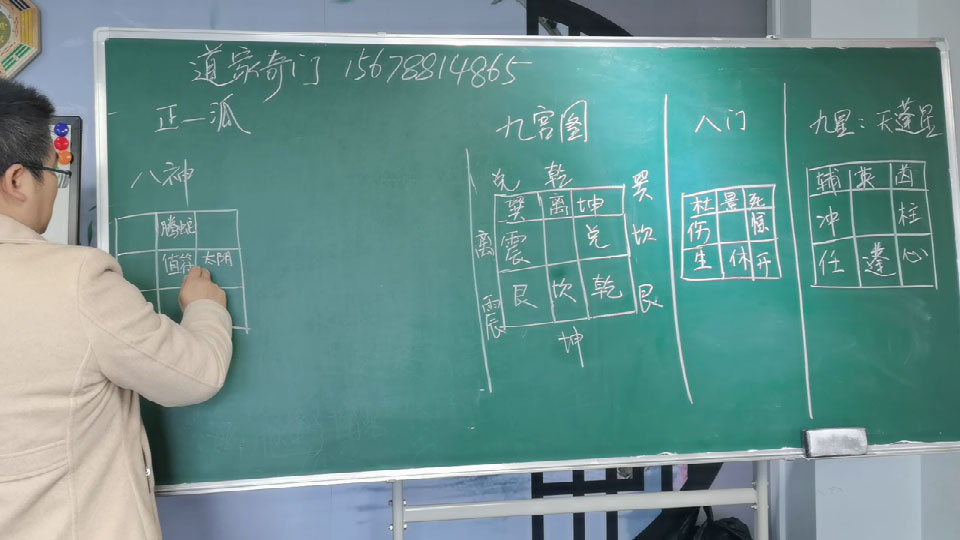 道家奇门 15678814865
正一派
八神
腾蛇
值符 太阴
九宫图
兑 乾 巽
巽 离 坤
离 震 兑 坎
艮 坎 乾
震 艮
坤
八门
杜 景 死
伤 惊
生 休 开
九星：天蓬星
辅 英 芮
冲 柱
任 蓬 心